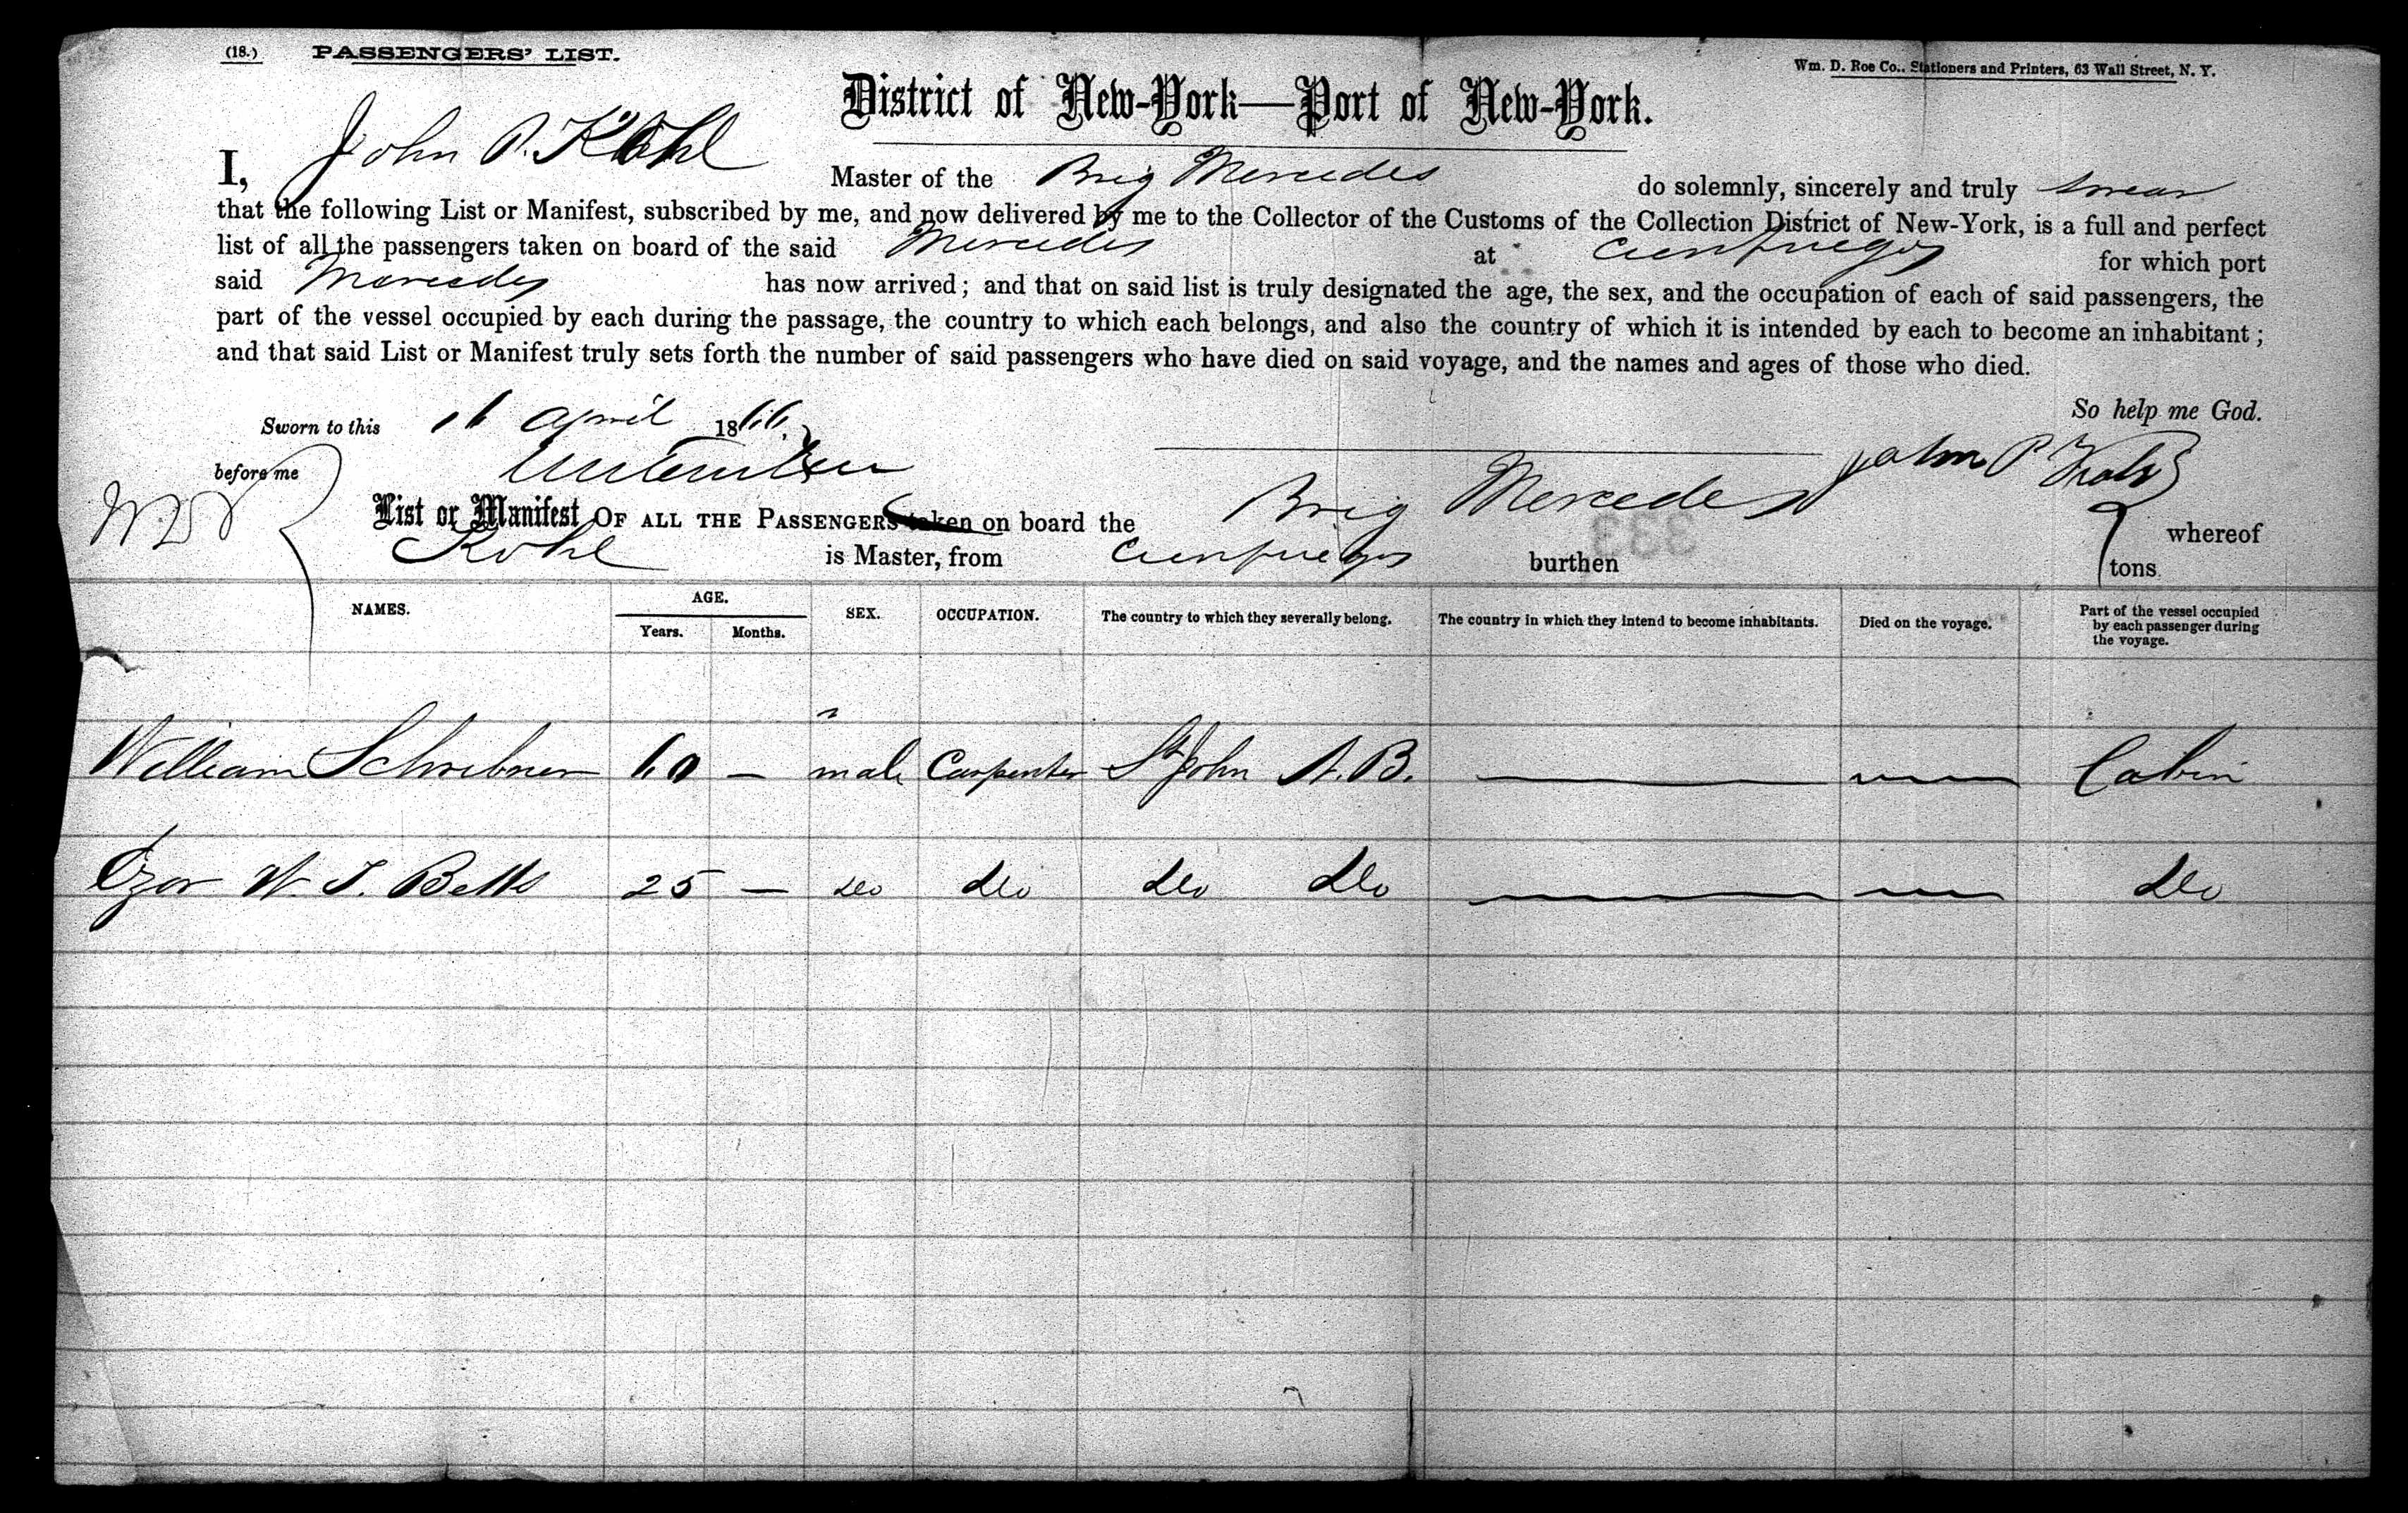 (18.) PASSENGERS' LIST.
Wm. D. Roe Co., Stationers and Printers, 63 Wall Street, N. Y.
District of New-York—Port of New-York.
I, John P. Kohl Master of the Brig Mercedes do solemnly, sincerely and truly swear
that the following List or Manifest, subscribed by me, and now delivered by me to the Collector of the Customs of the Collection District of New-York, is a full and perfect
list of all the passengers taken on board of the said Mercedes at Cienfuegos for which port
said Mercedes has now arrived; and that on said list is truly designated the age, the sex, and the occupation of each of said passengers, the
part of the vessel occupied by each during the passage, the country to which each belongs, and also the country of which it is intended by each to become an inhabitant;
and that said List or Manifest truly sets forth the number of said passengers who have died on said voyage, and the names and ages of those who died.
So help me God.
Sworn to this 16 April 1866
before me
John P Kohl
List or Manifest OF ALL THE PASSENGERS taken on board the Brig Mercedes whereof
Kohl is Master, from Cienfuegos burthen tons
333
NAMES. AGE. Years. Months. SEX. OCCUPATION. The country to which they severally belong. The country in which they intend to become inhabitants. Died on the voyage. Part of the vessel occupied by each passenger during the voyage.
William Schribner 60 — male Carpenter St John N.B. — — Cabin
Ozor W. J. Betts 25 — do do do do — — do